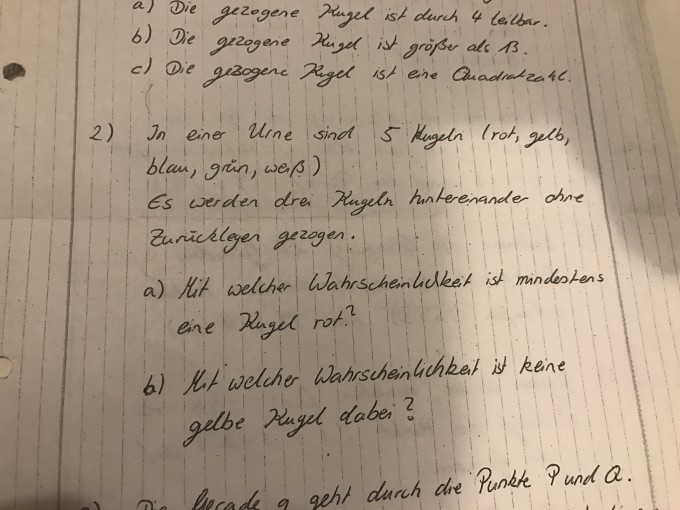 a) Die gezogene Kugel ist durch 4 teilbar.
b) Die gezogene Kugel ist größer als 13.
c) Die gezogene Kugel ist eine Quadratzahl.
2) In einer Urne sind 5 Kugeln (rot, gelb,
blau, grün, weiß)
Es werden drei Kugeln hintereinander ohne
Zurücklegen gezogen.
a) Mit welcher Wahrscheinlichkeit ist mindestens
eine Kugel rot?
b) Mit welcher Wahrscheinlichkeit ist keine
gelbe Kugel dabei?
Die Gerade g geht durch die Punkte P und Q.